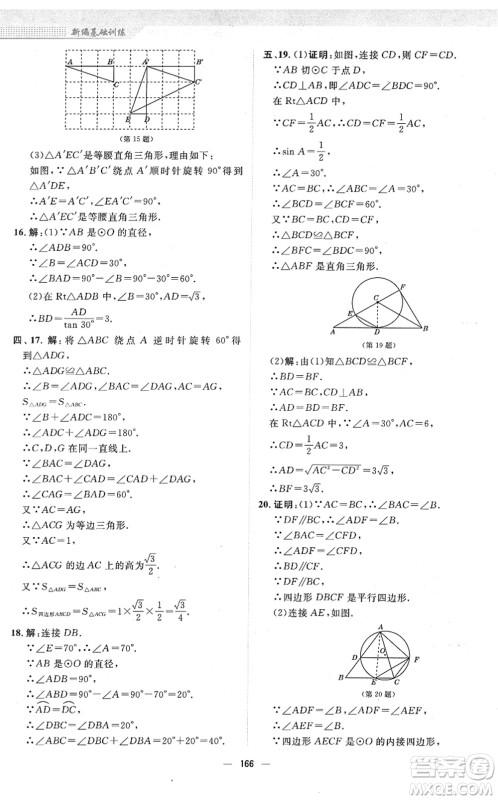 新编基础训练
A
B
C
A'
B'
C'
E
D
(第15题)
(3)△A'EC'是等腰直角三角形,理由如下:
如图,∵△A'B'C'绕点A'顺时针旋转90°得到△A'DE,
∴A'E=A'C',∠EA'C'=90°,
∴△A'EC'是等腰直角三角形.
16.解:(1)∵AB是⊙O的直径,
∴∠ADB=90°.
∵∠B=∠ACD=30°,
∴∠BAD=90°-∠B=90°-30°=60°.
(2)在Rt△ADB中,∵∠B=30°,AD=√3,
∴BD=AD/tan 30°=3.
四、17.解:将△ABC绕点A逆时针旋转60°得
到△ADG,
∴△ABC≌△ADG,
∴∠B=∠ADG,∠BAC=∠DAG,AC=AG,
S△ADG=S△ABC.
∵∠B+∠ADC=180°,
∴∠ADC+∠ADG=180°.
∴C,D,G在同一直线上.
又∵∠BAC=∠DAG,
∴∠CAG=∠BAD=60°.
又∵AC=AG,
∴△ACG为等边三角形.
又∵AC=1,
∴△ACG的边AC上的高为√3/2.
又∵S△ADG=S△ABC,
∴S四边形ABCD=S△ACG=1×√3/2×1/2=√3/4.
18.解:连接DB.
∵∠E=70°,
∴∠ABD=∠E=70°.
∵AB是⊙O的直径,
∴∠ADB=90°.
∴∠DAB=90°-∠ABD=20°.
∵AD=DC,
∴∠DBC=∠ABD=70°,
∴∠CAD=∠DBC=70°,
∴∠CAB=∠CAD-∠DAB=50°.
五、19.(1)证明:如图,连接CD,则CF=CD.
∵AB切⊙C于点D,
∴CD⊥AB,即∠ADC=90°.
在Rt△ACD中,
∵CF=1/2AC,
∴CD=1/2AC,
∴sin A=1/2,
∴∠A=30°.
∵AC=BC,
∴∠ABC=∠A=30°,
∴∠ACB=120°,∠BCD=∠BCF=60°.
又∵BC=BC,
∴△BCD≌△BCF,
∴∠BFC=∠BDC=90°,
∴△ABF是直角三角形.
F
C
A
D
B
(第19题)
(2)解:由(1)可知△BCD≌△BCF,
∴BD=BF.
∵AC=BC,CD⊥AB,
∴AD=BD=BF.
在Rt△ACD中,∵∠A=30°,AC=6,
∴CD=1/2AC=3,
∴AD=√AC²-CD²=3√3,
∴BF=3√3.
20.证明:(1)∵AC=BC,∴∠BAC=∠B.
∵DF∥BC,∴∠ADF=∠B.
又∵∠BAC=∠CFD,
∴∠ADF=∠CFD,
∴BD∥CF.
∵DF∥BC,
∴四边形DBCF是平行四边形.
(2)连接AE,如图,
A
D
O
F
B
E
C
(第20题)
∵∠ADF=∠B,∠ADF=∠AEF,
∴∠AEF=∠B.
∵四边形AECF是⊙O的内接四边形,
166
答案圈